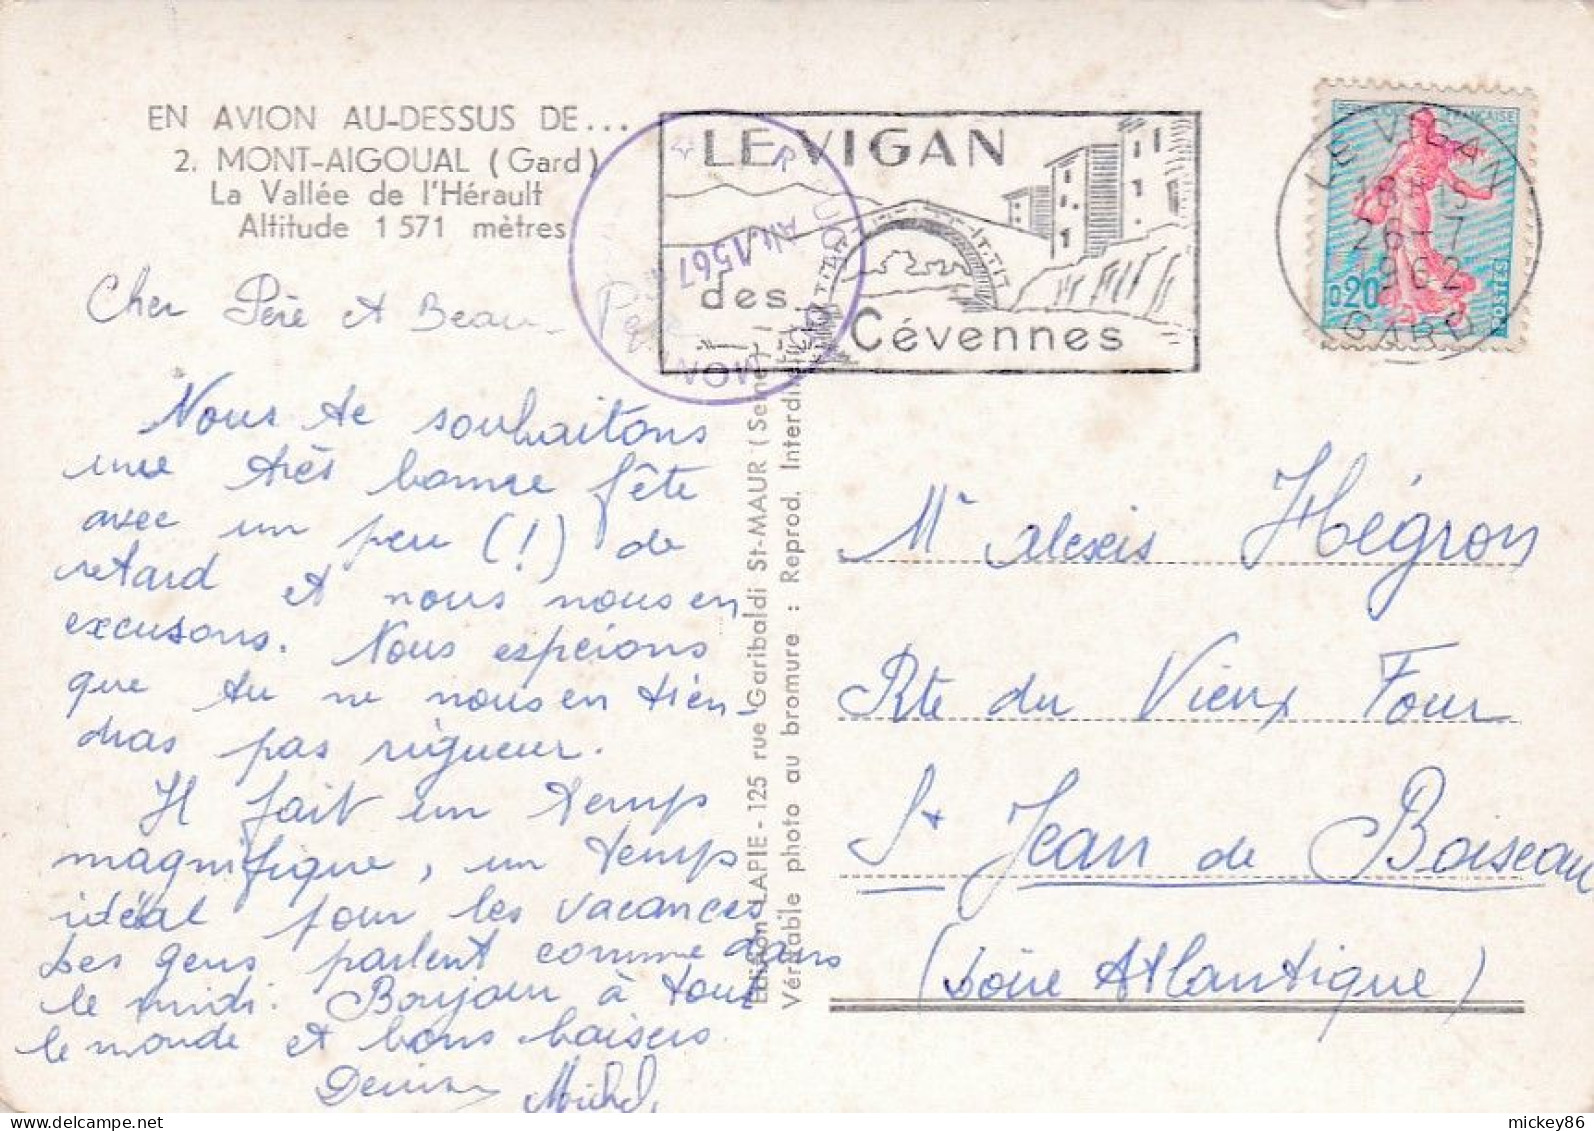 EN AVION AU-DESSUS DE...
2. MONT-AIGOUAL (Gard)
La Vallée de l'Hérault
Altitude 1 571 mètres
LE VIGAN
des
Cévennes
Alt. 1567
LE VIGAN
18H
26-7
1962
GARD
FRANÇAISE
0,20
POSTES
Cher Père et Beau-
Père
Nous te souhaitons
une très bonne fête
avec un peu (!) de
retard et nous nous en
excusons. Nous espérons
que tu ne nous en tien-
dras pas rigueur.
Il fait un temps
magnifique, un temps
idéal pour les vacances
Les gens parlent comme dans
le midi. Bonjour à tout
le monde et bons baisers
Denise Michel
Edition LAPIE - 125 rue Garibaldi St-MAUR (Seine)
Véritable photo au bromure : Reprod. Interdite
Mr Alexis Hégron
Rte du Vieux Four
St Jean de Boiseau
(Loire Atlantique)
mickey86